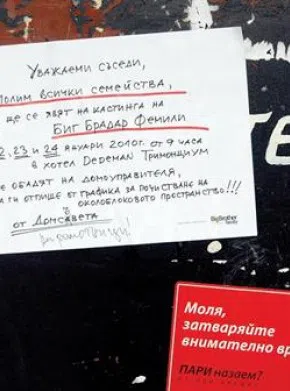 Уважаеми съседи,
Молим всички семейства,
ще се явят на кастинга на
Биг Брадар Фемили
2, 23 и 24 януари 2010г. от 9 часа
в хотел Dedeman Тримонциум
се обадят на домоуправителя,
да ги отпише от графика за почистване на
околоблоковото пространство!!!
от Домсъвета
BigBrother
family
Моля,
затваряйте
внимателно вр
ПАРИ назаем?